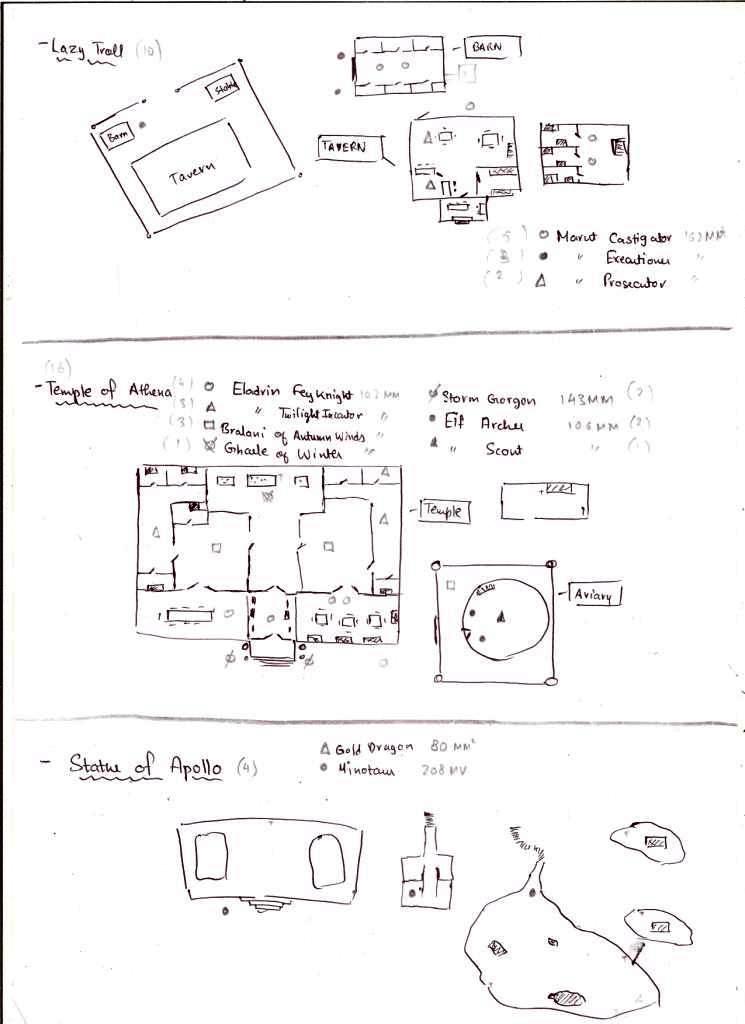 - Lazy Troll (10)
BARN
Stable
Barn
Tavern
TAVERN
(5) Marut Castigator 152 MM²
(3) " Executioner "
(2) " Prosecutor "
(16)
- Temple of Athena
(4) Eladrin Fey Knight 102 MM
(3) " Twilight Incator "
(3) Bralani of Autumn Winds "
(1) Ghaele of Winter "
Storm Gorgon 143 MM (2)
Elf Archer 106 MM (2)
" Scout " (1)
Temple
Aviary
- Statue of Apollo (4)
Gold Dragon 80 MM²
Minotaur 208 MV